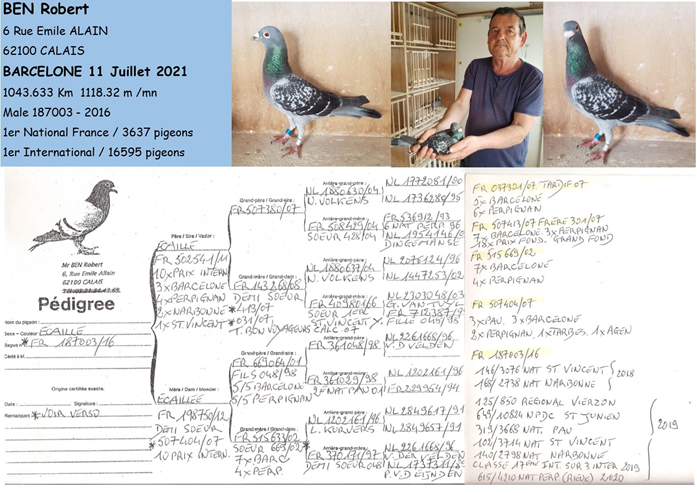 BEN Robert
6 Rue Emile ALAIN
62100 CALAIS
BARCELONE 11 Juillet 2021
1043.633 Km 1118.32 m /mn
Male 187003 - 2016
1er National France / 3637 pigeons
1er International / 16595 pigeons
Mr BEN Robert
6, Rue Emile Allain
62100 CALAIS
Pédigree
Nom du pigeon :
Sexe - Couleur ECAILLE
Bague n° FR 187003/16
Cédé à M.
Origine certifiée exacte.
Date : Signature :
Remarques *VOIR VERSO
Père / Sire / Vader :
ECAILLE
FR 502541/11
10x PRIX INTERN
3x BARCELONE
4x PERPIGNAN
2x NARBONNE
1x ST VINCENT
Mère / Dam / Moeder :
ECAILLEE
FR 198750/12
DEMI SOEUR
*507404/07
10 PRIX INTERN.
Grand-père / Grand-sire :
FR 507380/07
Grand-mère / Grand-dam :
FR 143268/08
DEMI SOEUR
*413/07
*031/07
T. BON VOYAGEURS
Grand-père / Grand-sire :
FR 669064/01
FILS 048/98
5/5 BARCELONE
5/5 PERPIGNAN
Grand-mère / Grand-dam :
FR 515633/02
*SOEUR 669/02
7x BARC
4x PERP.
Arrière-grand-père :
NL 1880630/04
N. VOLKENS
Arrière-grand-mère :
FR 508429/04
SOEUR 428/04
Arrière-grand-père :
NL 1880637/04
N. VOLKENS
Arrière-grand-mère :
FR 410980/06
SOEUR 1ER
ST VINCENT
CALC 07
Arrière-grand-père :
FR 361048/98
Arrière-grand-mère :
FR 361029/98
2E NAT PAU 01
Arrière-grand-père :
NL 1202161/96
L. KURVERS
Arrière-grand-mère :
FR 370171/97
DEMI SOEUR 048
NL 1772081/90
NL 1736280/95
FR 536912/93
6 NAT PERP 96
NL 1954146/0
DINGEMANSE
NL 2076124/96
NL 1447253/02
NL 2303048/03
G. VAN TUYL
FR 712387/9
FILLE 048/98
NL 2261668/96
V.D VELDEN
NL 1202161/96
FR 229954/94
NL 2849617/91
NL 2849657/91
NL 2261668/96
V. DER VELDEN
NL 1737311/8
P.V.D EIJNDEN
FR 037301/07 TARDIF 07
5x BARCELONE
6x PERPIGNAN
FR 507413/07 FRÈRE 301/07
7x BARCELONE. 3x PERPIGNAN
18x PRIX FOND. GRAND FOND
FR 515669/02
7x BARCELONE
4x PERPIGNAN
FR 507404/07
3x PAU. 3x BARCELONE
2x PERPIGNAN. 1x TARBES. 1x AGEN
FR 187003/16
146/3076 NAT ST VINCENT
168/2738 NAT NARBONNE
2018
125/850 REGIONAL VIERZON
649/10824 NPDC ST JUNIEN
319/3668 NAT. PAU
102/3714 NAT ST VINCENT
140/2798 NAT NARBONNE
2019
CLASSE 17ème INT. SUR 3 INTER 2019
615/4210 NAT PERP (RIEUX) 2020